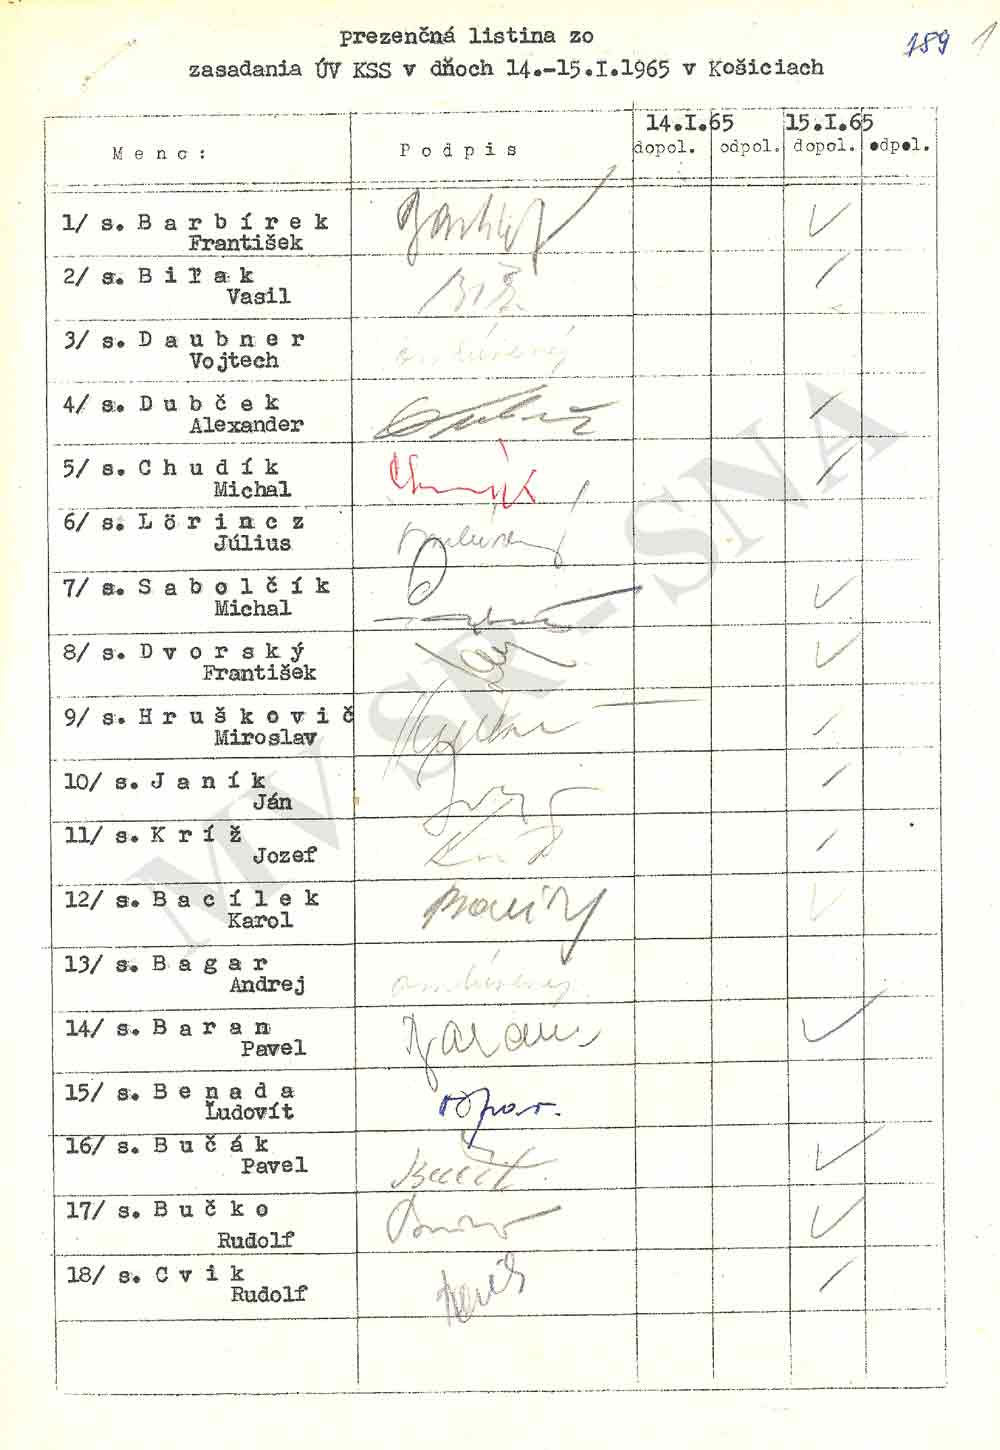 prezenčná listina zo
189 1
zasadania ÚV KSS v dňoch 14.-15.I.1965 v Košiciach
14.I.65 15.I.65
Meno: Podpis dopol. odpol. dopol. odpol.
1/ s. Barbírek
František
2/ s. Biľak
Vasil
3/ s. Daubner
Vojtech
4/ s. Dubček
Alexander
5/ s. Chudík
Michal
6/ s. Lörincz
Július
7/ s. Sabolčík
Michal
8/ s. Dvorský
František
9/ s. Hruškovič
Miroslav
10/ s. Janík
Ján
11/ s. Kríž
Jozef
12/ s. Bacílek
Karol
13/ s. Bagar
Andrej
14/ s. Baran
Pavel
15/ s. Benada
Ľudovít
16/ s. Bučák
Pavel
17/ s. Bučko
Rudolf
18/ s. Cvik
Rudolf
MV SR - SNA